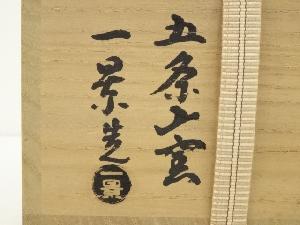 五条山窯
一景造
一景